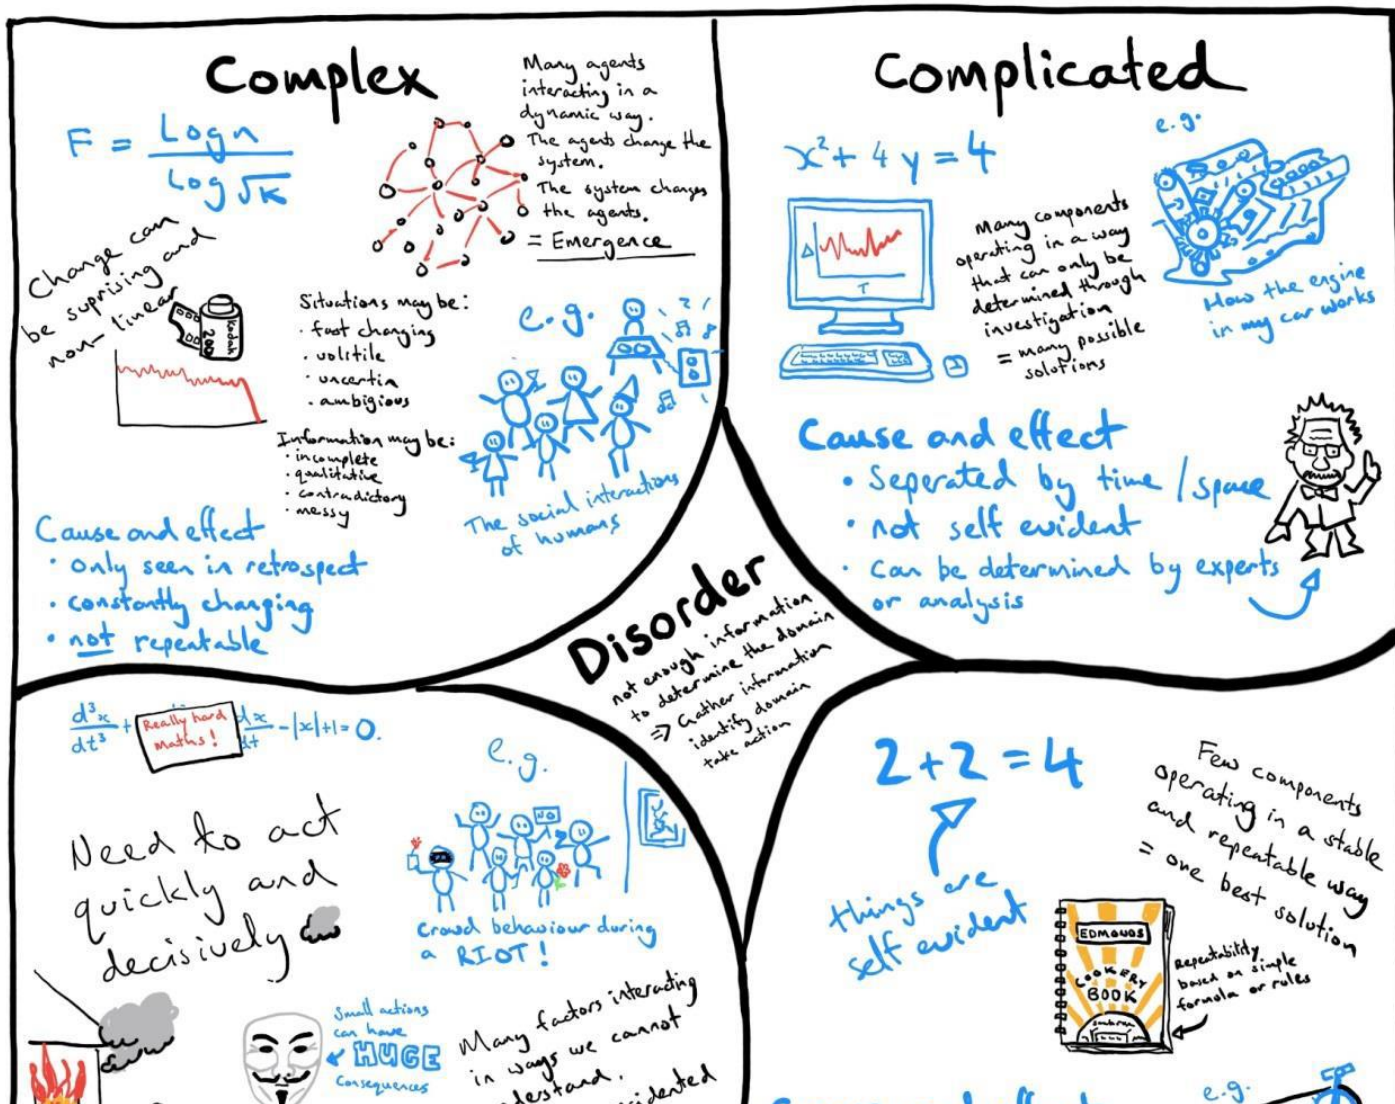 Complex
F = Log n
Log √K
Many agents
interacting in a
dynamic way.
The agents change the
system.
The system changes
the agents.
= Emergence
Change can
be suprising and
non-linear
Kodak
200
Situations may be:
· fast changing
· volitile
· uncertin
· ambigious
Information may be:
· incomplete
· qualitative
· contradictory
· messy
e.g.
The social interactions
of humans
Cause and effect
· only seen in retrospect
· constantly changing
· not repeatable
Complicated
x² + 4y = 4
T
Many components
operating in a way
that can only be
determined through
investigation
= many possible
solutions
e.g.
How the engine
in my car works
Cause and effect
• Seperated by time / space
• not self evident
• can be determined by experts
or analysis
Disorder
not enough information
to determine the domain
=> Gather information
identify domain
take action
d³x
dt³ +
Really hard
Maths!
dx
dt - |x|+1=0.
Need to act
quickly and
decisively
e.g.
NO
Crowd behaviour during
a RIOT!
Small actions
can have
HUGE
Consequences
Many factors interacting
in ways we cannot
2+2=4
things are
self evident
Few components
operating in a stable
and repeatable way
= one best solution
EDMONDS
COOKERY
BOOK
Repeatability
based on simple
formula or rules
e.g.